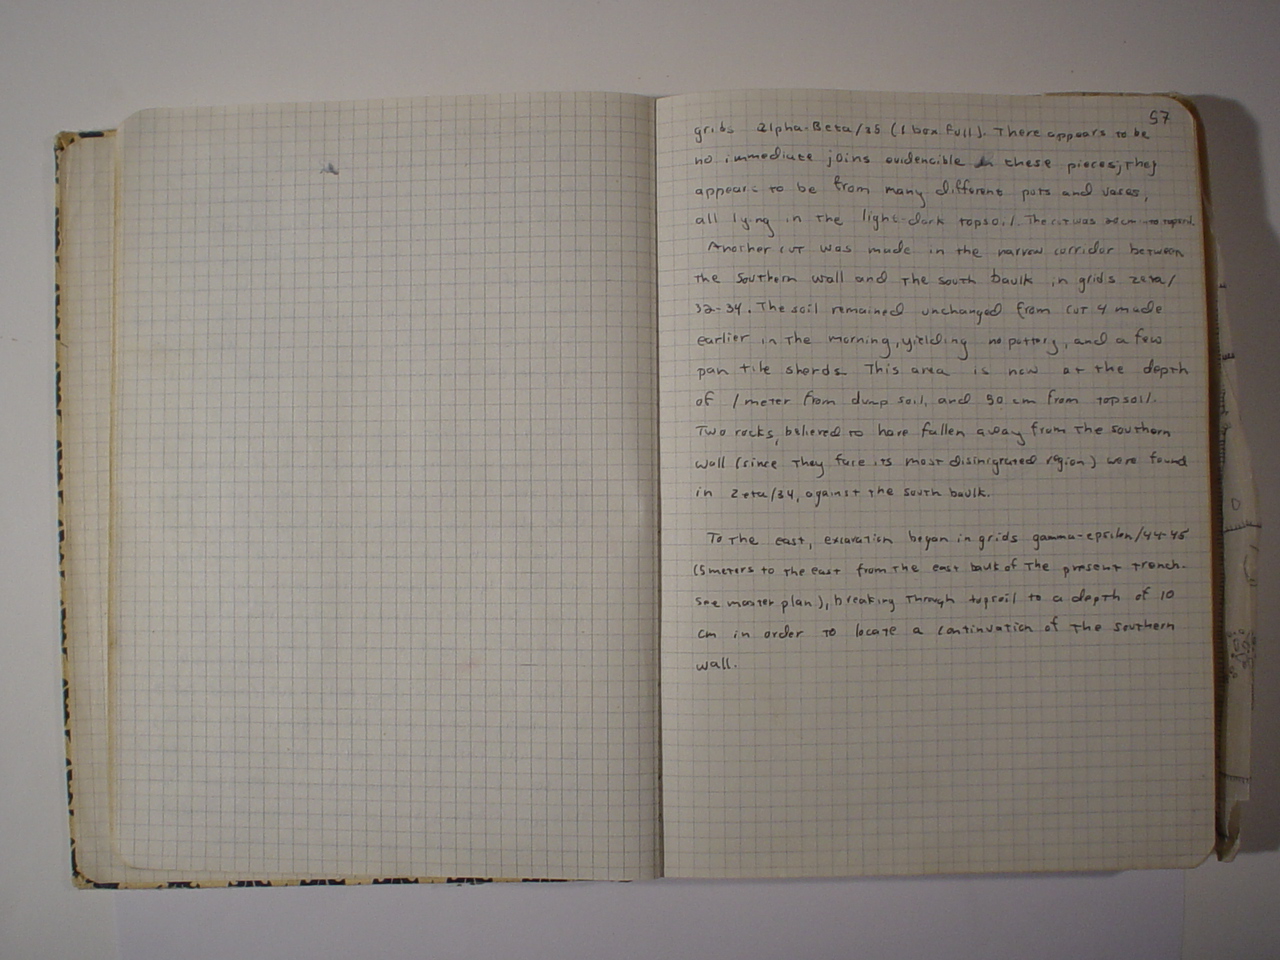 57
gribs alpha-Beta/35 (1 box full). There appears to be
no immediate joins evidencible in these pieces; they
appears to be from many different pots and vases,
all lying in the light-dark topsoil. The cut was 20cm to topsoil.
Another cut was made in the narrow corridor between
the southern wall and the south baulk in grids zeta/
32-34. The soil remained unchanged from cut 4 made
earlier in the morning, yielding no pottery, and a few
pan tile sherds. This area is now at the depth
of 1 meter from dump soil, and 50 cm from topsoil.
Two rocks, believed to have fallen away from the southern
wall (since they face its most disinigrated region) were found
in Zeta/34, against the south baulk.
To the east, excavation began in grids gamma-epsilon/44-45
(5 meters to the east from the east baulk of the present trench.
See master plan), breaking through topsoil to a depth of 10
cm in order to locate a continuation of the southern
wall.